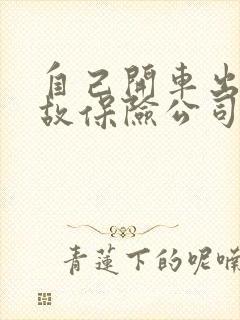 自己開車出
故保險公司
青蓮下的呢喃